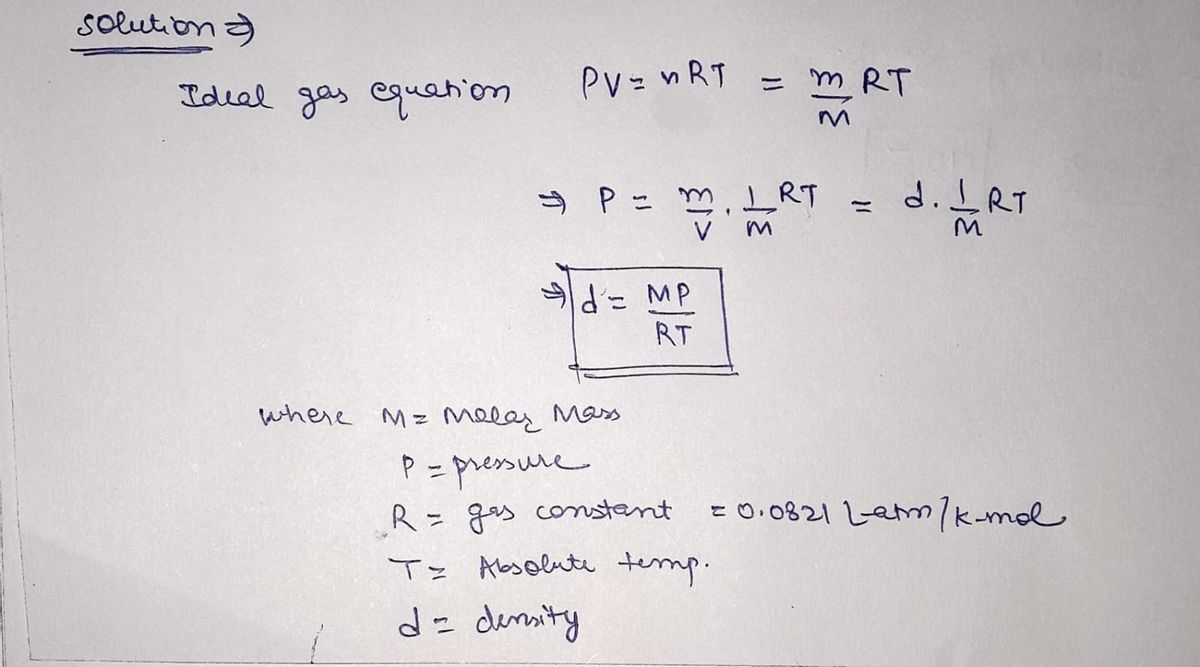 solution ⇒
Ideal gas equation PV = nRT = m/M RT
⇒ P = m/V . 1/M RT = d. 1/M RT
⇒ d = MP/RT
where M = Molar Mass
P = pressure
R = gas constant = 0.0821 L-atm/k-mol
T = Absolute temp.
d = density